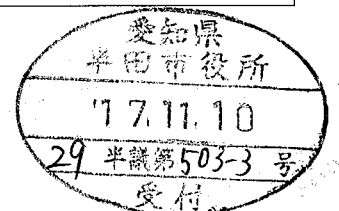 愛知県
半田市役所
'17.11.10
29 半議第503-3号
受付